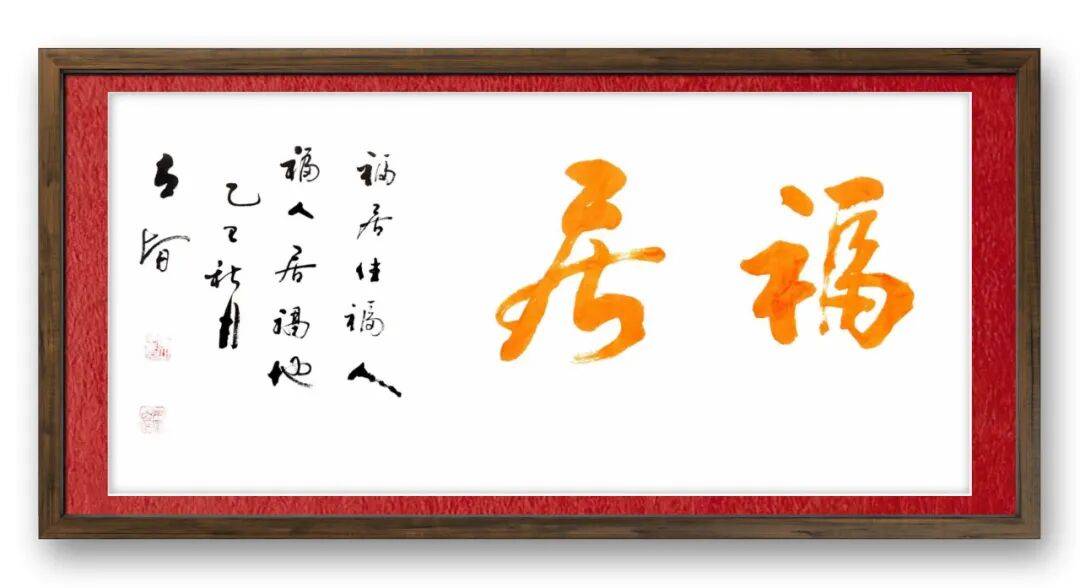 福居
福居住福人
福人居福地
秋月